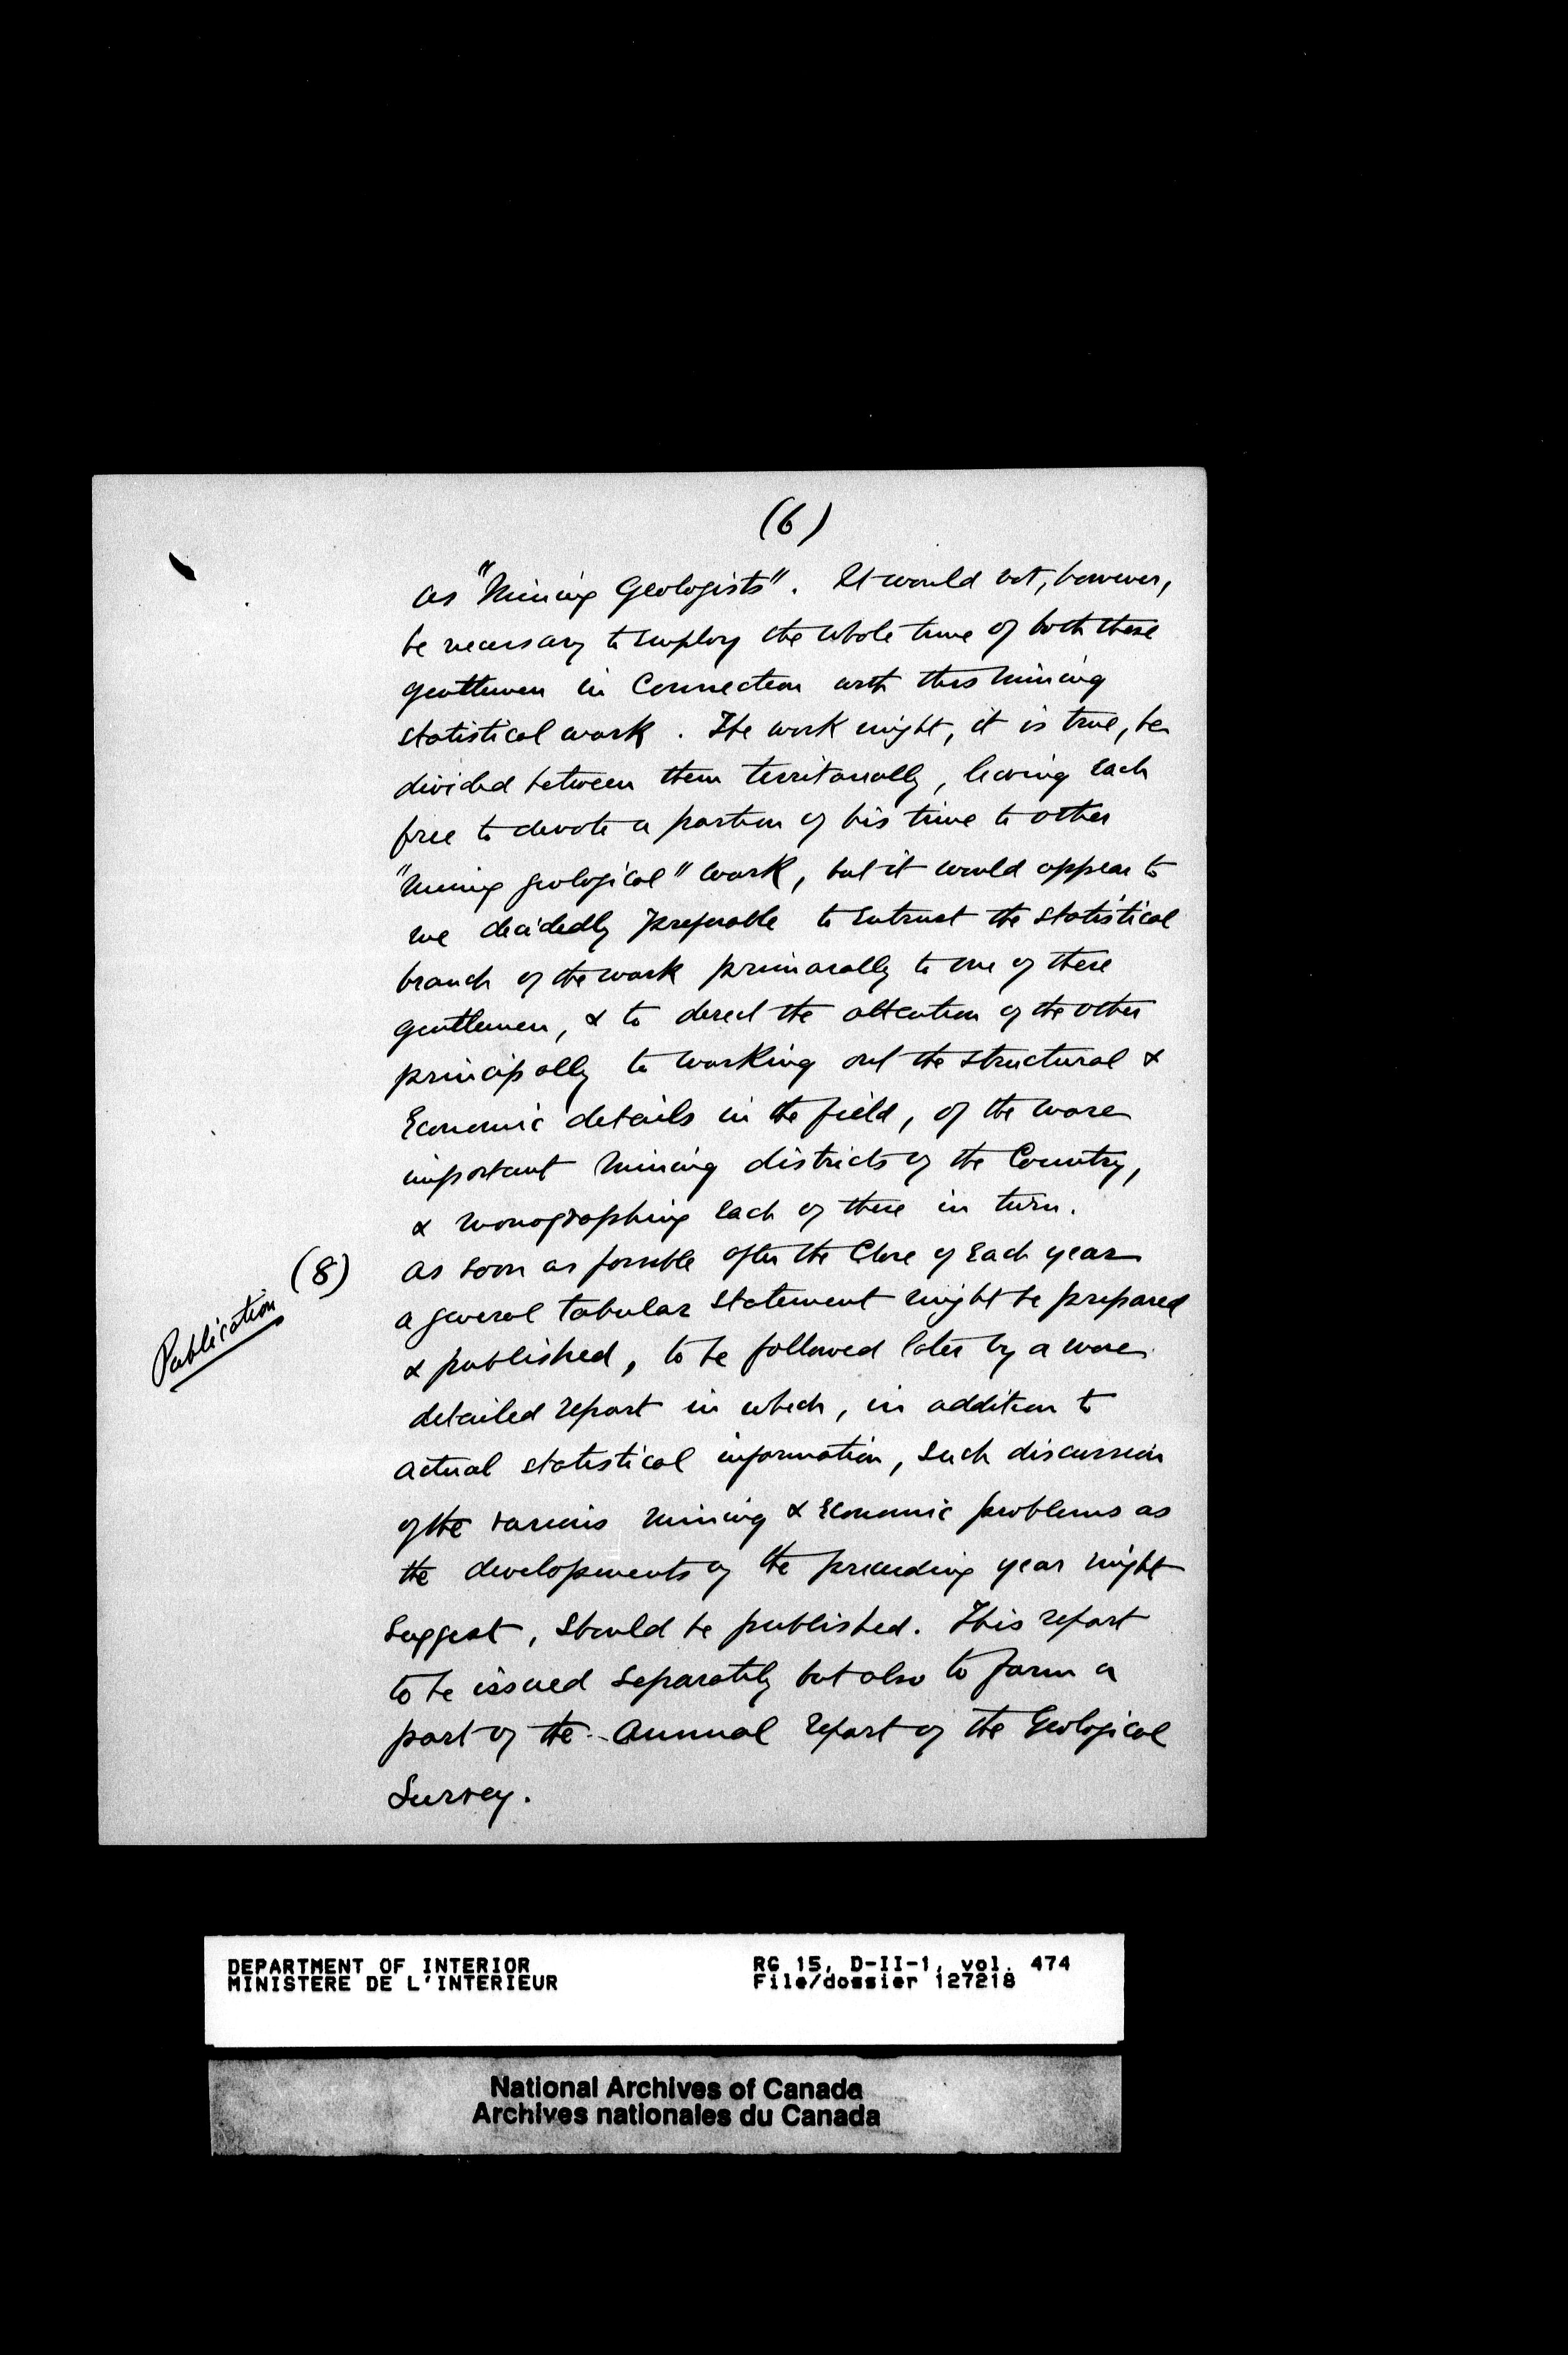 (6)
as "Mining Geologists". It would not, however,
be necessary to employ the whole time of both these
gentlemen in Connection with this mining
statistical work. The work might, it is true, be
divided between them territorially, leaving each
free to devote a portion of his time to other
"mining geological" work, but it would appear to
me decidedly preferable to entrust the statistical
branch of the work primarally to one of these
gentlemen, & to direct the attention of the other
principally to working out the structural &
Economic details in the field, of the more
important mining districts of the Country,
& monographing each of these in turn.
Publication (8) As soon as possible after the Close of Each year
a general tabular statement might be prepared
& published, to be followed later by a more
detailed report in which, in addition to
actual statistical information, such discussion
of the various mining & Economic problems as
the developments of the preceeding year might
suggest, should be published. This report
to be issued separately but also to form a
part of the Annual Report of the Geological
Survey.
DEPARTMENT OF INTERIOR RG 15, D-II-1, vol. 474
MINISTERE DE L'INTERIEUR File/dossier 127218
National Archives of Canada
Archives nationales du Canada